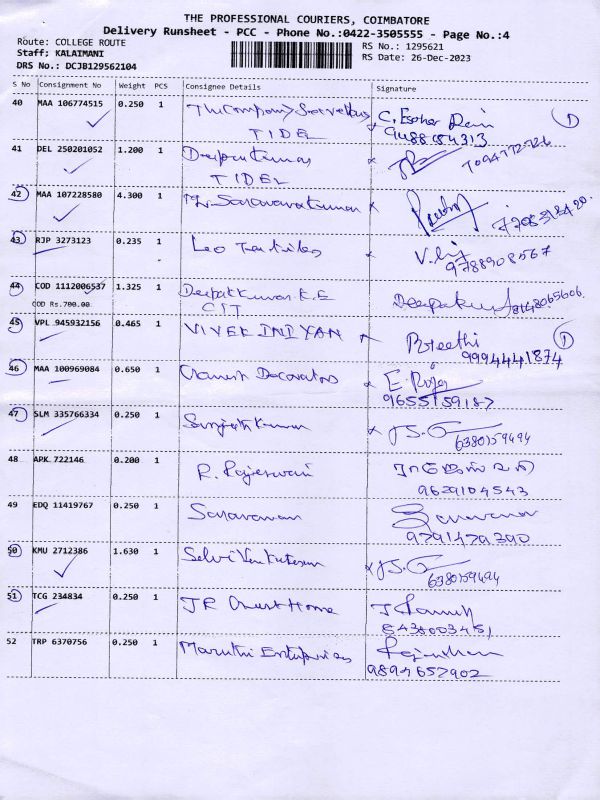 THE PROFESSIONAL COURIERS, COIMBATORE
Delivery Runsheet - PCC - Phone No.:0422-3505555 - Page No.:4
Route: COLLEGE ROUTE
RS No.: 1295621
Staff; KALAIMANI
RS Date: 26-Dec-2023
DRS No.: DCJB129562104
S No Consignment No Weight PCS Consignee Details Signature
40 MAA 106774515 0.250 1 The Company
TIDEL 9488054313
41 DEL 250201052 1.200 1 Deepankumar
TIDEL
42 MAA 107228580 4.300 1 Saravanakumar
43 RJP 3273123 0.235 1 Leo Textiles
9788908567
44 COD 1112006537 1.325 1 Deepakkumar K.E Deepakkumar 8148065606
COD Rs.700.00 CIT
45 VPL 945932156 0.465 1 VIVEK INIYAN Preethi
9994441874
46 MAA 100969084 0.650 1 Ganesh Decorators E. Roja
9655159187
47 SLM 335766334 0.250 1 Sanjaykumar J.S.
6380159494
48 APK 722146 0.200 1 R. Rajeswari
9629104543
49 EDQ 11419767 0.250 1 Saravanan Saravanan
9791479390
50 KMU 2712386 1.630 1 Selvi J.S.
6380159494
51 TCG 234834 0.250 1 JR Guest Home
8438003451
52 TRP 6370756 0.250 1 Maruthi Enterprises
9894657902